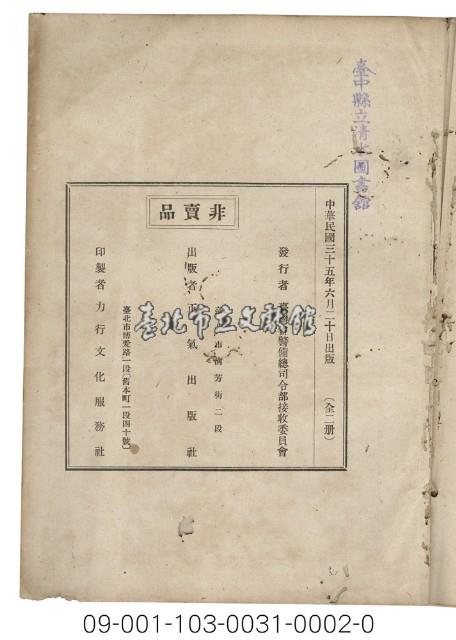 臺中縣立清水圖書館
中華民國三十五年六月二十日出版 (全二册)
非賣品
發行者 臺 警備總司令部接收委員會
出版者 正氣出版社
市 芳街二段
印製者 力行文化服務社
臺北市博愛路一段(舊本町一段四十號)
臺北市立文獻館
09-001-103-0031-0002-0